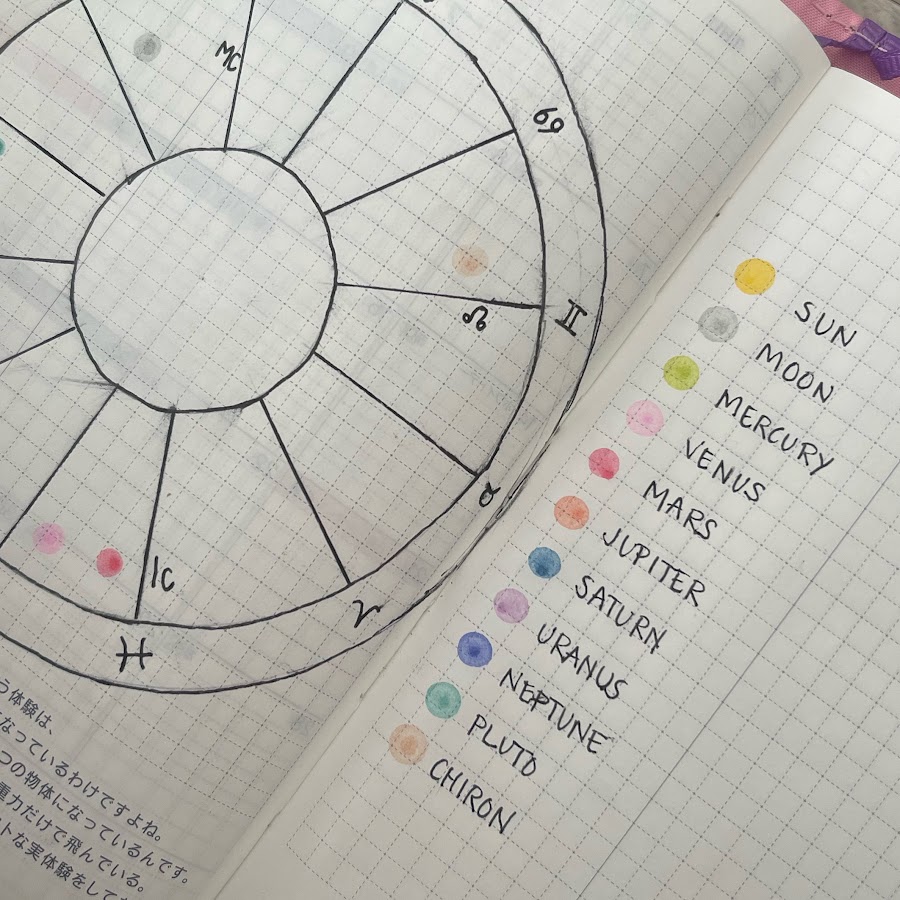 MC
♋
♊
☊
♉
IC
♈
♓
う体験は、
なっているわけですよね。
つの物体になっているんです。
重力だけで飛んでいる。
トな実体験をして
SUN
MOON
MERCURY
VENUS
MARS
JUPITER
SATURN
URANUS
NEPTUNE
PLUTO
CHIRON